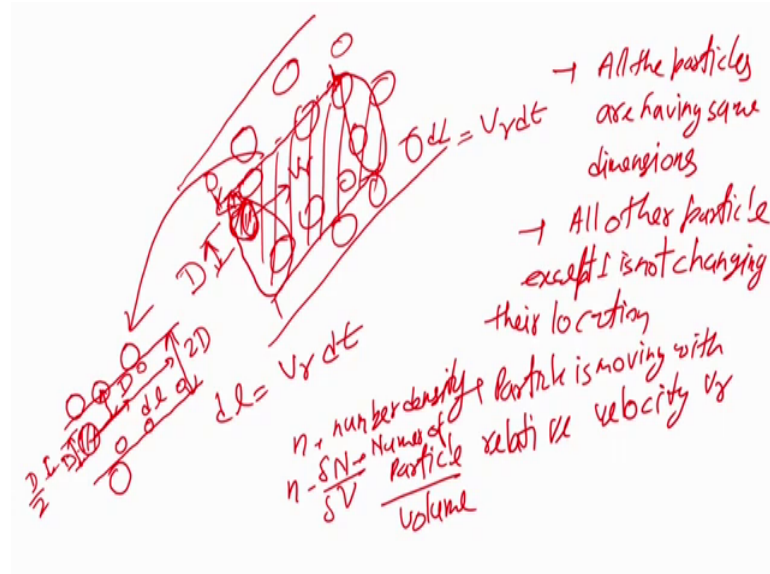 → All the particles
are having same
dimensions
→ All other particle
except 1 is not changing
their location
→ Particle is moving with
relative velocity vr
dl = Vr dt
D
Vr
dl = Vr dt
n → number density
n - δN → Number of
Particle
δV
Volume
2D
D
dl
D
D/2